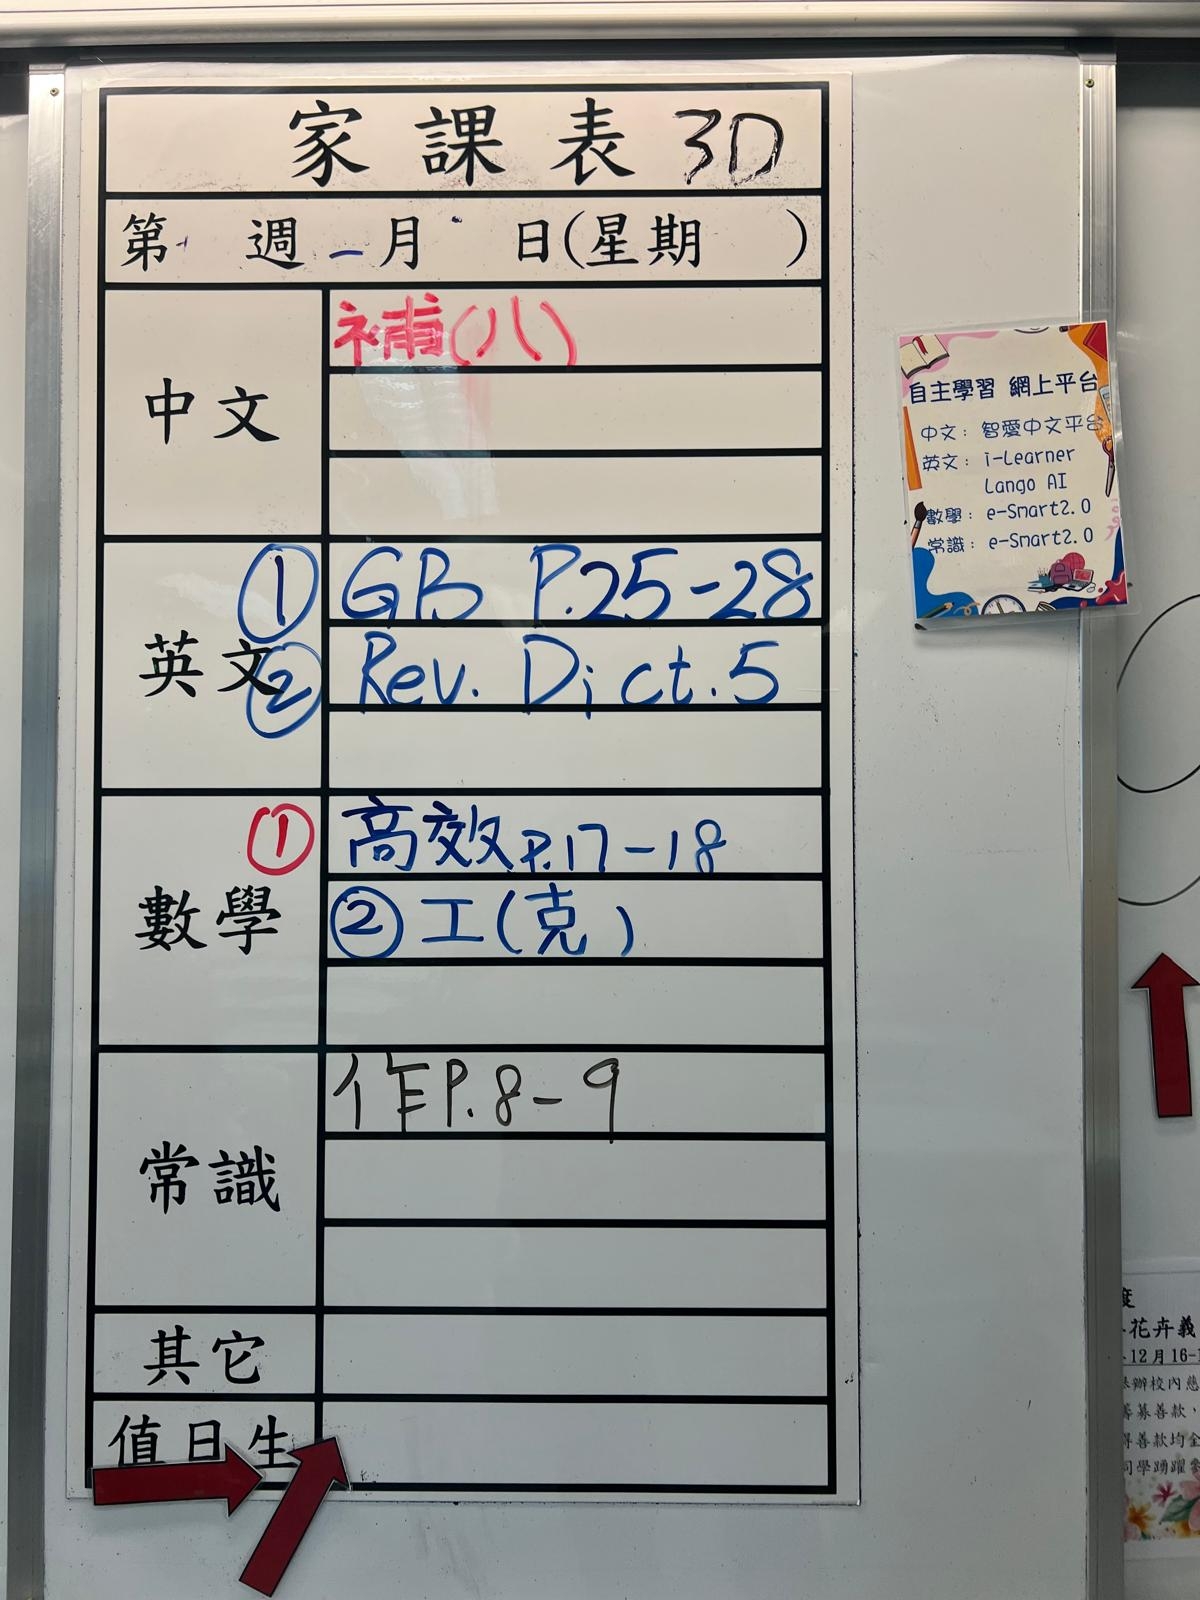 家課表 3D
第 週 月 日(星期 )
中文
補(八)
英文
① GB P.25-28
② Rev. Dict.5
數學
① 高效 P.17-18
② 工(克)
常識
作P.8-9
其它
值日生
自主學習 網上平台
中文：智愛中文平台
英文：i-Learner
Lango AI
數學：e-Smart2.0
常識：e-Smart2.0
度
花卉義
12月16-1
辦校內慈
募善款，
善款均全
同學踴躍